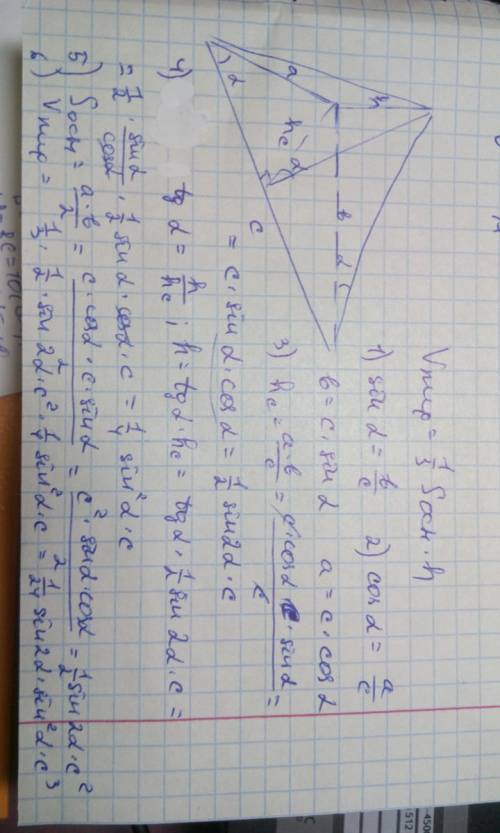 Vпир = 1/3 Sосн · h
1) sin α = b/c 2) cos α = a/c
b = c · sin α a = c · cos α
3) hc = a·b/c = c·cos α c·sin α/c =
= c · sin α · cos α = 1/2 sin 2α · c
4) tg α = h/hc ; h = tg α · hc = tg α · 1/2 sin 2α · c =
= 1/2 · sin α/cos α · 1/2 sin α · cos α · c = 1/4 sin² α · c
5) Sосн = a·b/2 = c·cos α·c·sin α/2 = c²·sin α·cos α/2 = 1/2 sin 2α · c²
6) Vпир = 1/3 · 1/2 · sin 2α · c² · 1/4 sin² α · c = 1/24 sin 2α · sin² α · c³
a
h
hc
α
b
α
c
α
-450
512